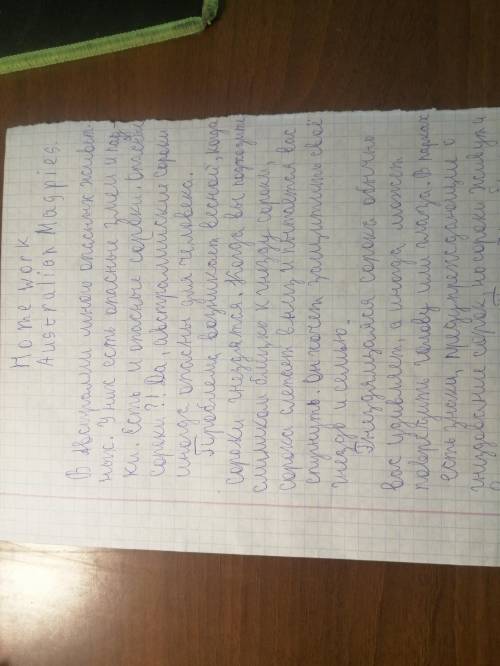 Home work
Australian Magpies.
В Австралии много опасных живот-
ных. У них есть опасные змеи и пау-
ки. Есть и опасные сороки. Опасные
сороки?! Да, австралийские сороки
иногда опасны для человека.
Проблема возникает весной, когда
сороки гнездятся. Когда вы подходите
слишком близко к гнезду сороки,
сорока слетает вниз и пытается вас
спугнуть. Он хочет защитить своё
гнездо и семью.
Гнездящаяся сорока обычно
вас удивляет, а иногда может
повредить голову или глаза. В парках
есть знаки, предупреждающие о
гнездование сорок, но сороки живут и